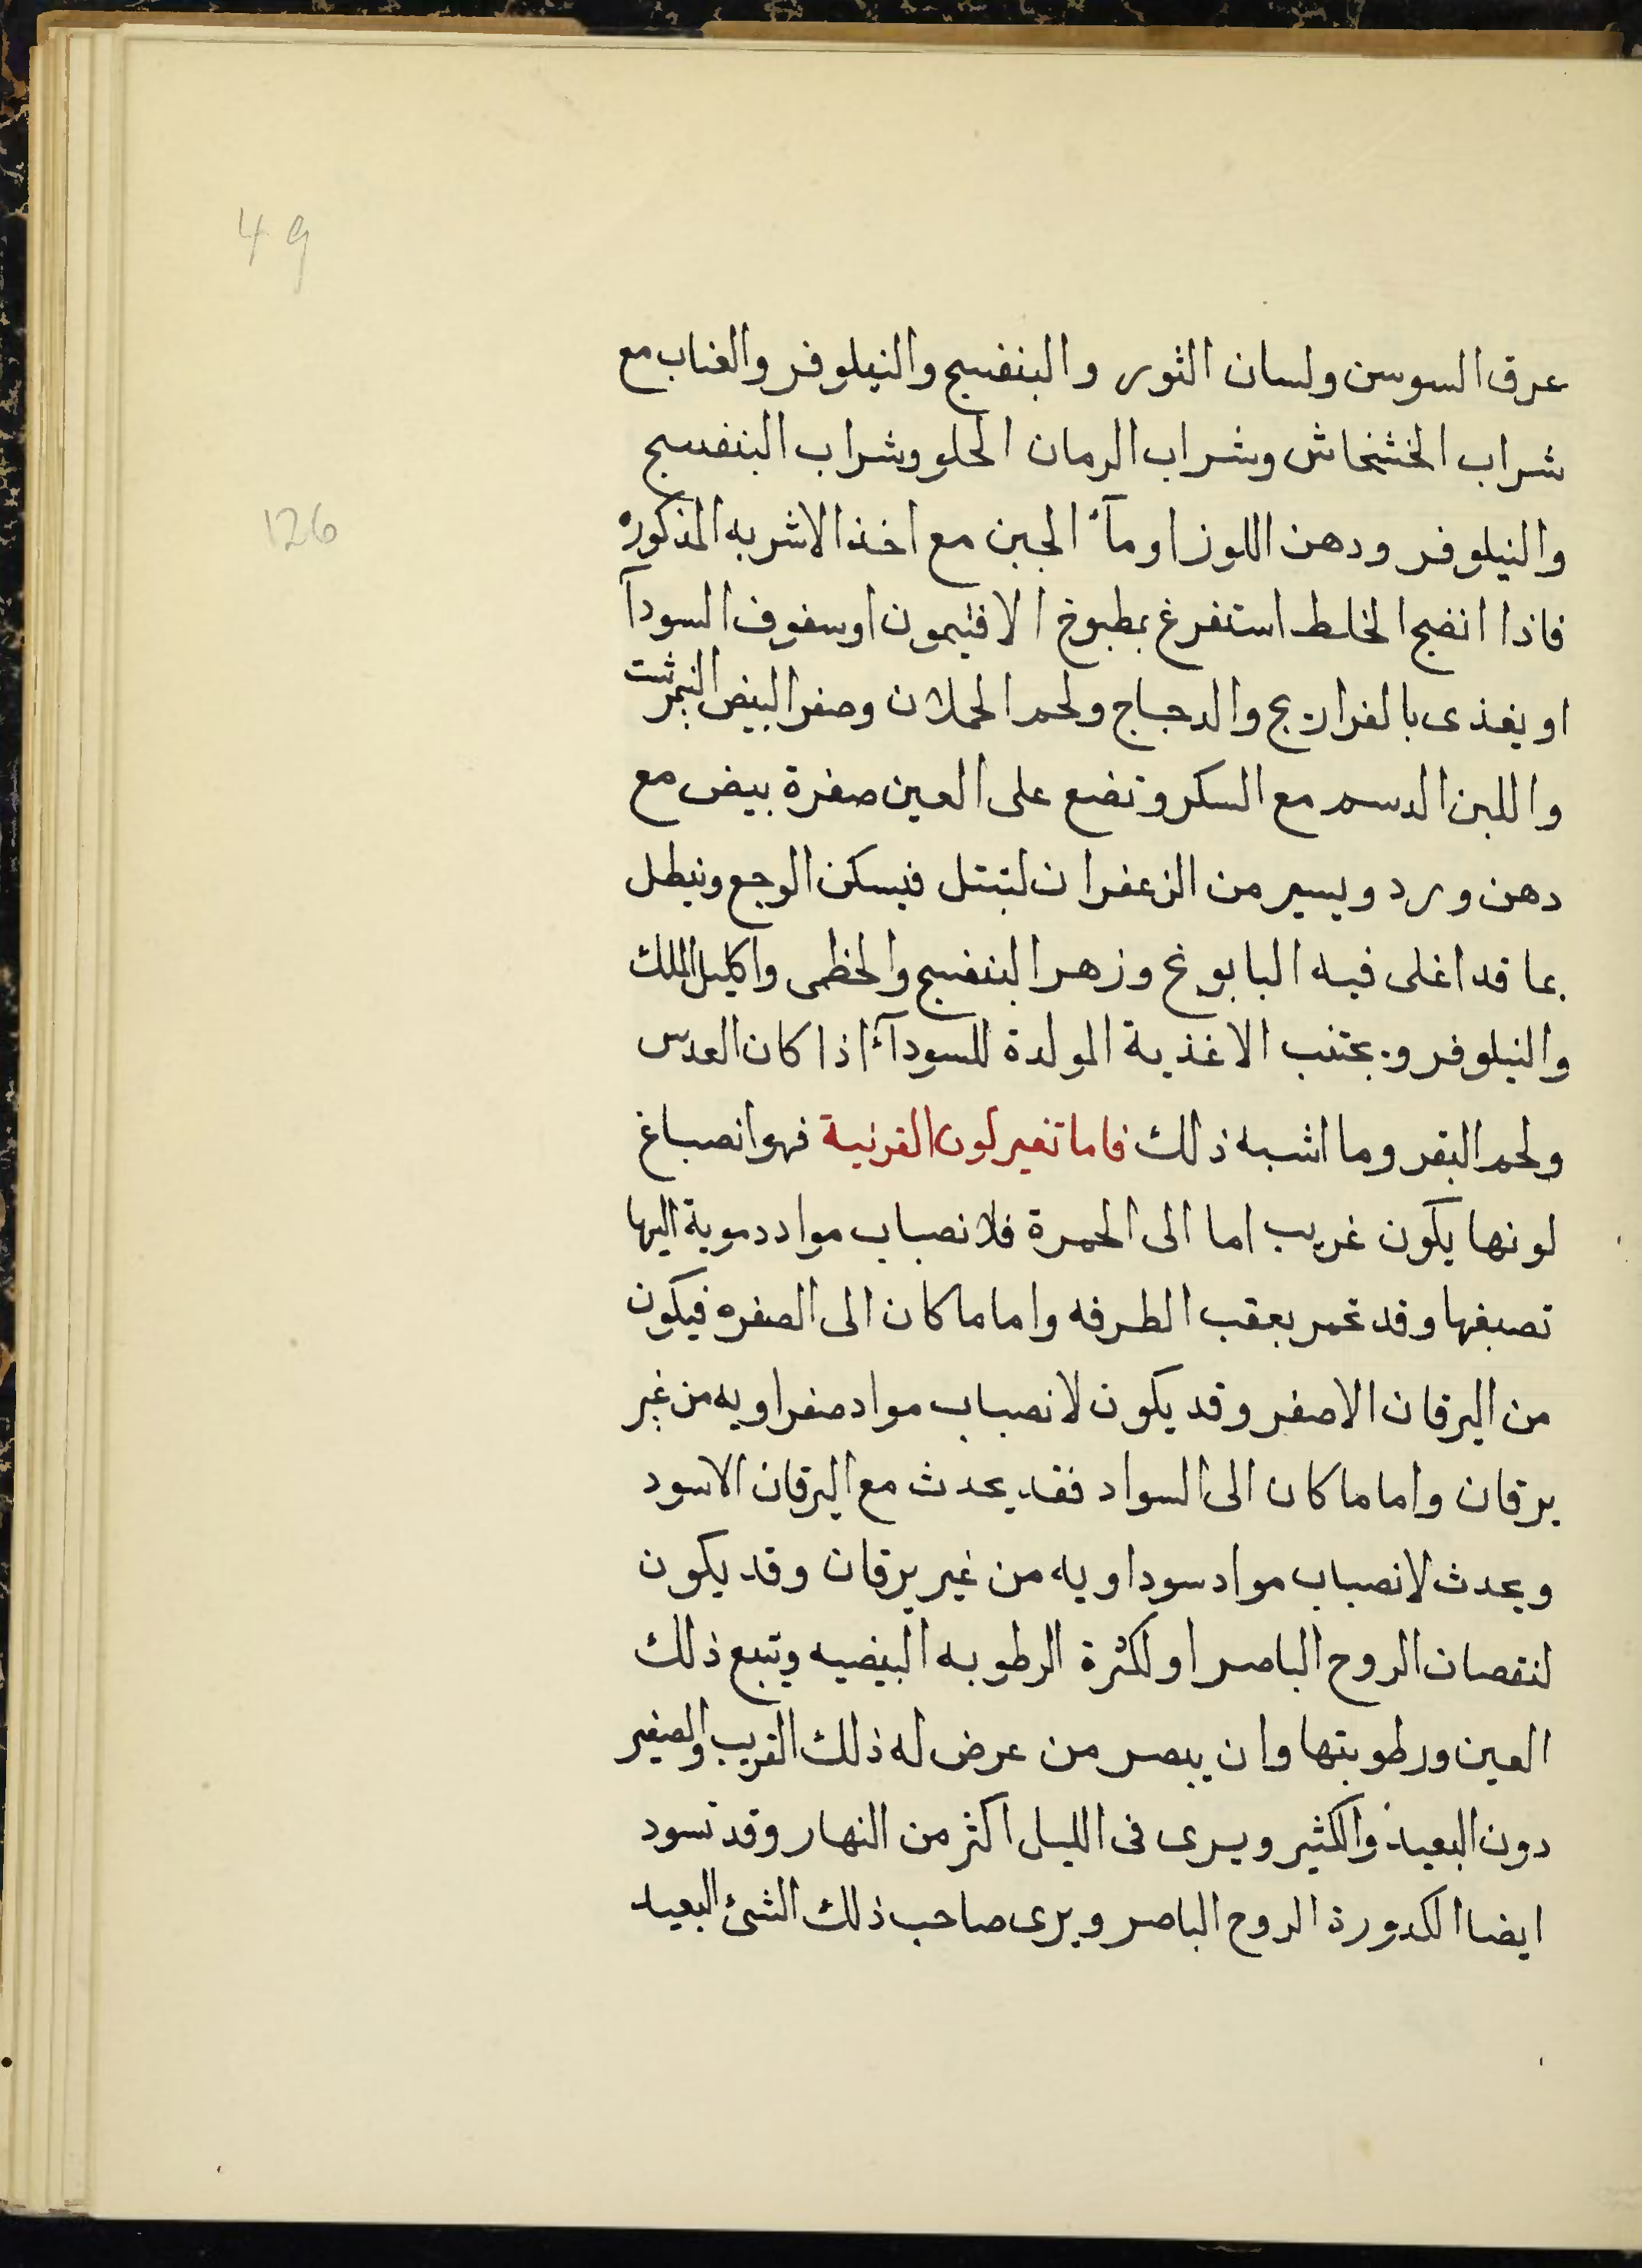 49
عرق السوسن ولسان الثور والبنفسج والنيلوفر والعناب مع
شراب الخشخاش وشراب الرمان الحلو وشراب البنفسج
126
والنيلوفر ودهن اللوز او مآء الجبن مع اخذ الاشربه المذكوره
فاذا انضج الخلط استفرغ بمطبوخ الافتيمون او سفوف السودآ
او يغذى بالفراريج والدجاج ولحم الحملان وصفر البيض النيمرشت
واللبن الدسم مع السكر وتضع على العين صفرة بيض مع
دهن ورد ويسير من الزعفران لتبتل فيسكن الوجع وينطل
بما قد اغلى فيه البابونج وزهر البنفسج والخطمى واكليل الملك
والنيلوفر ويجتنب الاغذية المولدة للسودآء اذا كان العدس
ولحم البقر وما اشبه ذلك فاما تغير لون القرنية فهو انصباغ
لونها يكون غريب اما الى الحمرة فلانصباب مواد دموية اليها
تصبغها وقد تحمر بعقب الطرفه واما ما كان الى الصفره فيكون
من اليرقان الاصفر وقد يكون لانصباب مواد صفراويه من غير
يرقان واما ما كان الى السواد فقد يحدث مع اليرقان الاسود
ويحدث لانصباب مواد سوداويه من غير يرقان وقد يكون
لنقصان الروح الباصر او لكثرة الرطوبه البيضيه ويتبع ذلك
العين ورطوبتها وان يبصر من عرض له ذلك القريب والصغير
دون البعيد والكثير ويرى فى الليل اكثر من النهار وقد تسود
ايضا الكدورة الروح الباصر ويرى صاحب ذلك الشئ البعيد